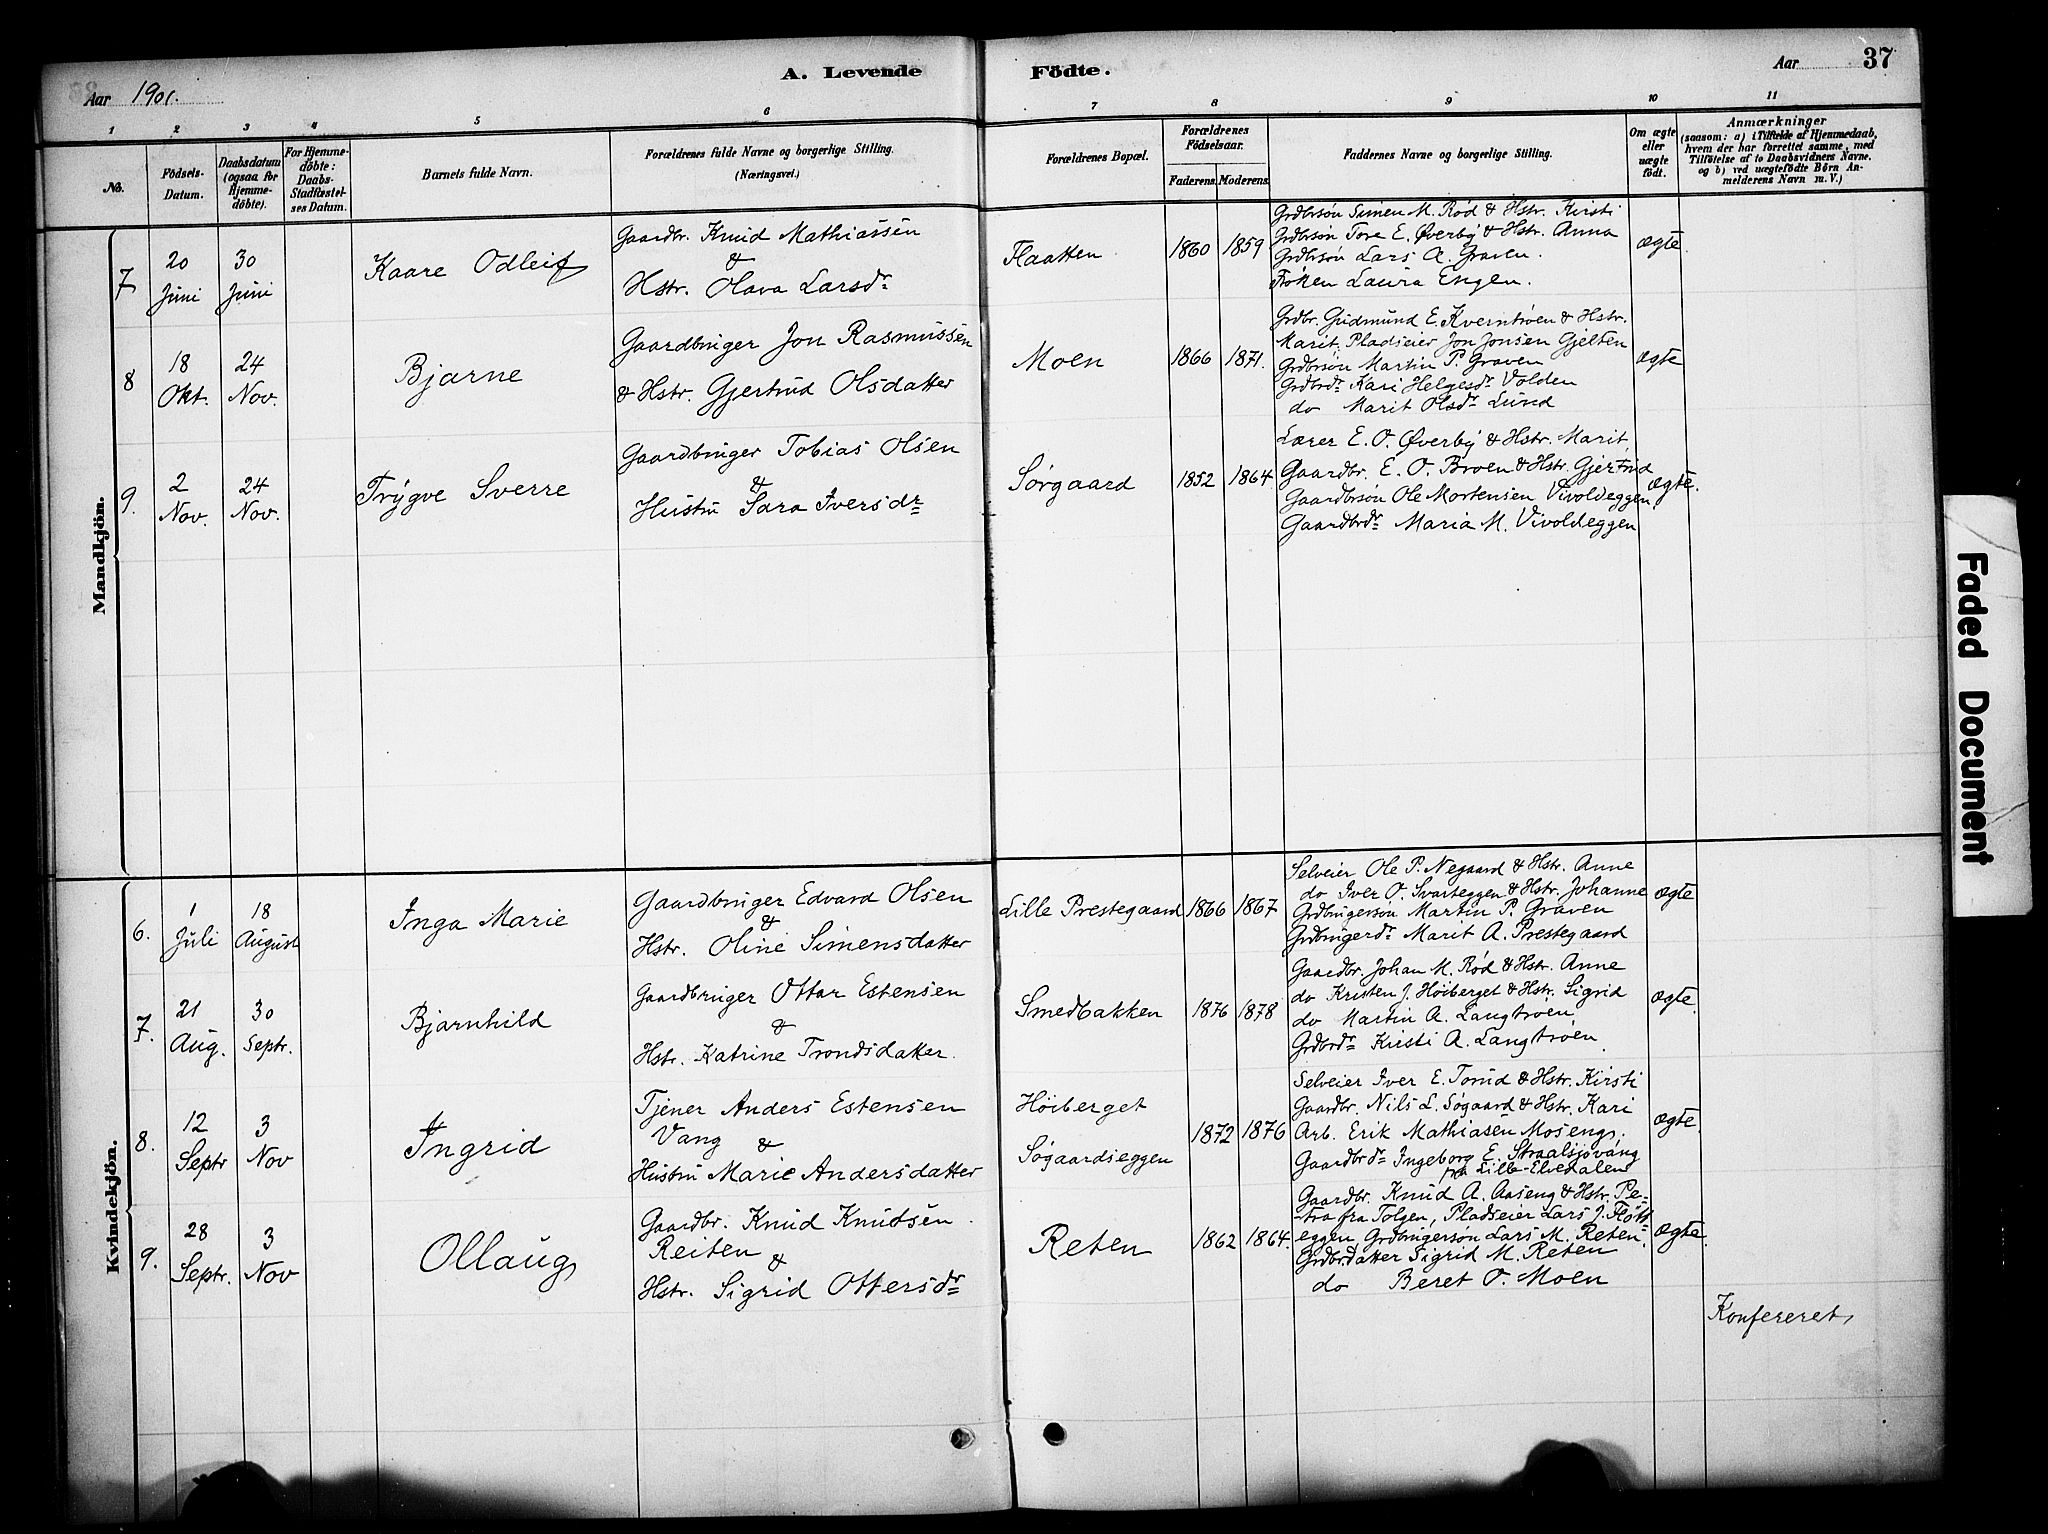 A. Levende Födte.
Aar 1901.
Aar 37
1 2 3 4 5 6 7 8 9 10 11
No.
Födsels-Datum.
Daabsdatum (ogsaa for Hjemme-döbte).
For Hjemme-döbte: Daabs-Stadfæstel-ses Datum.
Barnets fulde Navn.
Forældrenes fulde Navne og borgerlige Stilling.
(Næringsvei.)
Forældrenes Bopæl.
Forældrenes Födselsaar.
Faderens. Moderens.
Faddernes Navne og borgerlige Stilling.
Om ægte eller uægte födt.
Anmærkninger
(saasom: a) i Tilfælde af Hjemmedaab,
hvem der har forrettet samme, med
Tilföielse af to Daabsvidners Navne,
og b) ved uægtefödte Börn An-
melderens Navn m. V.)
Mandkjön.
7 20 Juni 30 Juni
Kaare Odleif
Gaardbr. Knud Mathiassen
&
Hstr. Olava Larsdr
Flaatten 1860 1859
Grdbrsøn Simen M. Rød & Hstr. Kirsti
Grdbrsøn Tore E. Øverby & Hstr. Anna
Grdbrsøn Lars A. Graven.
Frøken Laura Engen.
ægte.
8 18 Okt. 24 Nov.
Bjarne
Gaardbruger Jon Rasmussen
& Hstr. Gjertrud Olsdatter
Moen 1866 1871.
Grdbr. Gudmund E. Kverntrøen & Hstr.
Marit, Pladseier Jon Jonsen Gjelten
Grdbrsøn Martin P. Graven
Grdbrdr Kari Helgesdr Volden
do Marit Olsdr Lund
ægte
9. 2 Nov. 24 Nov.
Trygve Sverre
Gaardbruger Tobias Olsen
&
Hustru Sara Iversdr
Sørgaard 1852 1864
Lærer E. O. Øverby & Hstr. Marit
Gaardbr. E. O. Broen & Hstr. Gjertrud
Gaardbrsøn Ole Mortensen Vivoldeggen
Gaardbrdr Maria M. Vivoldeggen
ægte.
Kvindekjön.
6. 1 Juli 18 August
Inga Marie
Gaardbruger Edvard Olsen
&
Hstr. Oline Simensdatter
Lille Prestegaard 1866 1867
Selveier Ole P. Negaard & Hstr. Anne
do Iver O. Svarteggen & Hstr. Johanne
Grdbrugersøn Martin P. Graven
Grdbrugerdr Marit A. Prestegaard
ægte
7. 21 Aug. 30 Septr.
Bjarnhild
Gaardbruger Ottar Estensen
&
Hstr. Katrine Trondsdatter.
Smedbakken 1876 1878
Gaardbr. Johan M. Rød & Hstr. Anne
do Kristen J. Höiberget & Hstr. Sigrid
do Martin A. Langtrøen,
Grdbrdr Kirsti A. Langtrøen
ægte.
8. 12 Septr 3 Nov
Ingrid
Tjener Anders Estensen
Vang &
Hustru Marie Andersdatter
Höiberget
Søgaardseggen
1872 1876
Selveier Iver E. Torud & Hstr. Kirsti
Gaardbr. Nils L. Søgaard & Hstr. Kari
Arb. Erik Mathiasen Moseng,
Gaardbrdr Ingeborg E. Straalsjøvang
fra Lille-Elvedalen
ægte.
9. 28 Septr. 3 Nov
Ollaug
Gaardbr. Knud Knudsen.
Reiten &
Hstr. Sigrid Ottersdr
Reten 1862 1864.
Gaardbr. Knud A. Aaseng & Hstr. Pe-
-tra fra Tolgen, Pladseier Lars J. Fløtt-
eggen, Grdbrugersøn Lars M. Reten.
Grdbr.datter Sigrid M. Reten
do Beret O. Moen
ægte.
Konfereret
Faded Document